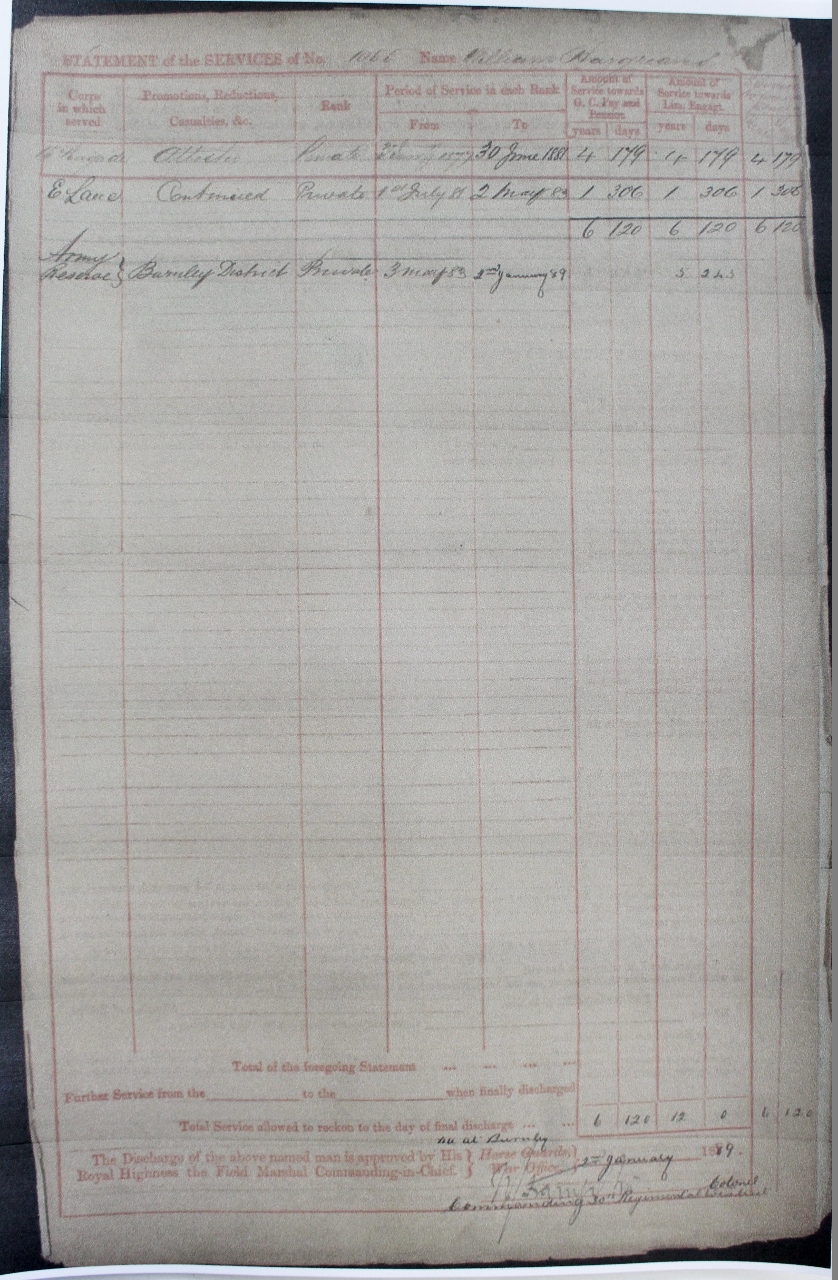 STATEMENT of the SERVICES of No. 1066 Name William Hargreaves
Corps in which served
Promotions, Reductions, Casualties, &c.
Rank
Period of Service in each Rank
From To
Amount of Service towards G. C. Pay and Pension
years days
Amount of Service towards Lim. Engagt.
years days
Attested Private 30 June 1881 4 179 4 179 4 179
E Lanc Continued Private 1st July 81 2 May 83 1 306 1 306 1 306
6 120 6 120 6 120
Army
Reserve } Burnley District Private 3 May 83 2nd January 89 5 245
Total of the foregoing Statement ... ... ... ...
Further Service from the to the when finally discharged
Total Service allowed to reckon to the day of final discharge ... ... 6 120 12 0 6 120
at Burnley
The Discharge of the above named man is approved by His } Horse Guards,
Royal Highness the Field Marshal Commanding-in-Chief. } War Office, 2nd January 1889.
Colonel
Commanding 30th Regimental District